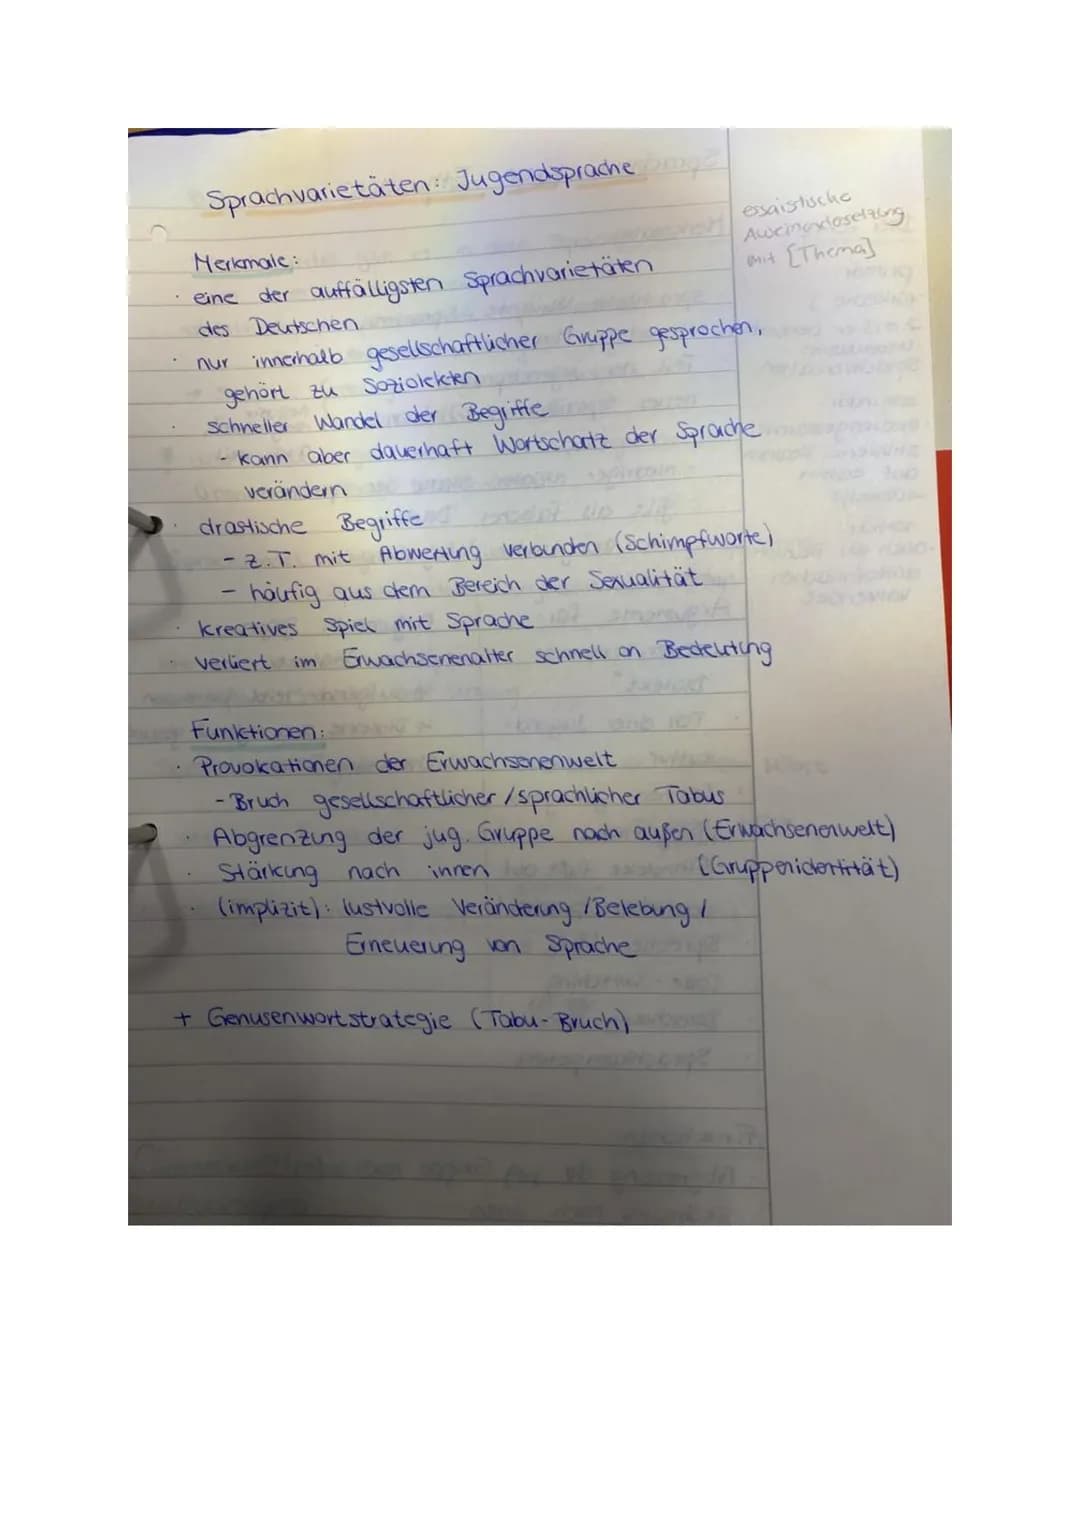 Sprachvarietäten: Jugendsprache
essaistische
Auseinandersetzung
mit [Thema]
Merkmale:
· eine der auffälligsten Sprachvarietäten
des Deutschen
· nur innerhalb gesellschaftlicher Gruppe gesprochen,
gehört zu Soziolekten
· schneller Wandel der Begriffe
- kann aber dauerhaft Wortschatz der Sprache
verändern
· drastische Begriffe
- z.T. mit Abwertung verbunden (Schimpfworte)
- häufig aus dem Bereich der Sexualität
· kreatives Spiel mit Sprache
· verliert im Erwachsenenalter schnell an Bedeutung
Funktionen:
· Provokationen der Erwachsenenwelt
- Bruch gesellschaftlicher / sprachlicher Tabus
· Abgrenzung der jug. Gruppe nach außen (Erwachsenenwelt)
· Stärkung nach innen (Gruppenidentität)
· (implizit): lustvolle Veränderung / Belebung /
Erneuerung von Sprache
+ Genusenwortstrategie (Tabu-Bruch)